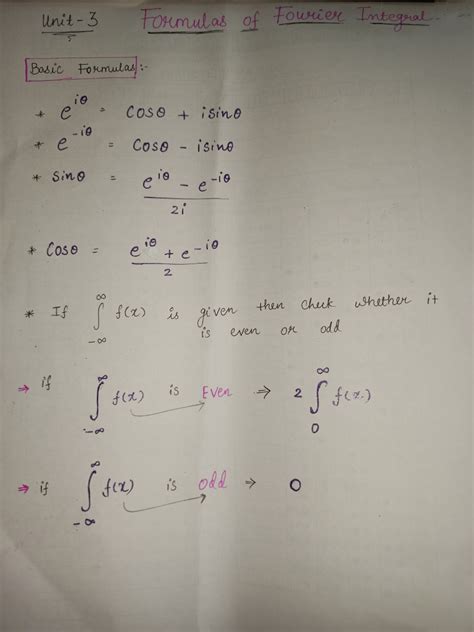 Unit-3 Formulas of Fourier Integral.
5
Basic Formulas :-
* e^{iθ} = Cosθ + isinθ
* e^{-iθ} = Cosθ - isinθ
* Sinθ = \frac{e^{iθ} - e^{-iθ}}{2i}
* Cosθ = \frac{e^{iθ} + e^{-iθ}}{2}
* If ∫_{-∞}^{∞} f(x) is given then check whether it
is even or odd
⇒ if ∫_{-∞}^{∞} f(x) is Even ⇒ 2 ∫_{0}^{∞} f(x)
⇒ if ∫_{-∞}^{∞} f(x) is odd ⇒ 0